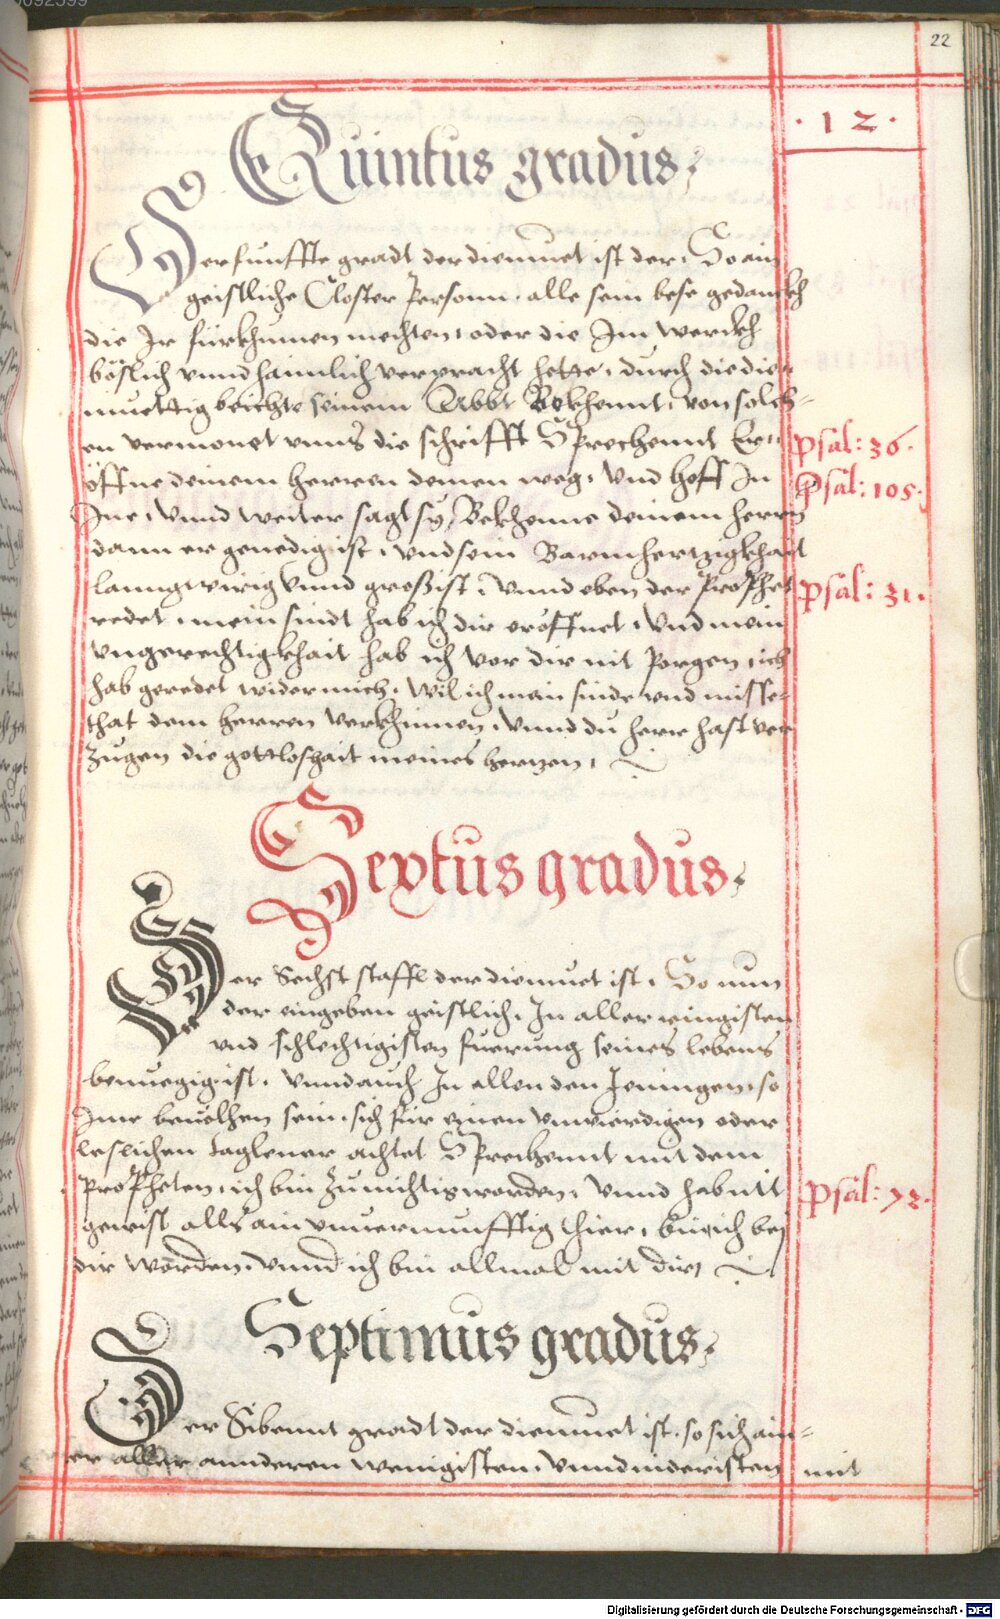 22
· 1 2 ·
Quintus gradus;
Der funffte gradt der diemuet ist der, So ain
geistliche Closter Personn, alle sein bese gedanckh
die Ir fürkhumen mechten, oder die Im werckh
böslich vnnd haimlich verpracht hette, durch die die-
muettig beichte seinem Abbt Bekhennt, von solch-
en vermonet vnns die schrifft Sprechennt Er-
öffne deinem herren deinen weg, Vnd hoff In
Ine, Vnnd weiter sagt sy, Bekhenne deinem herrn
dann er genedig ist, vnd sein Barmhertzigkhait
lanngwirig Vnnd gros ist, Vnnd eben der Prophet
redet, mein sindt hab ich dir eröffnet, Vnd mein
Vngerechtigkhait hab ich vor dir nit Porgen, ich
hab geredet wider mich, Wil ich mein sinde vnd misse-
that dem herren verkhinnen, Vnnd du herr hast ver
zügen die gottloshait meines hertzen,
Psal: 36.
Psal: 105.
Psal: 31.
Sextus gradus;
Der Sechst staffl der diemuet ist, So nun
der eingeben geistlich, In aller ringisten
vnd schlechtigisten fuerung seines lebens
benuegig ist, Vnnd auch In allen den Jeningen, so
Ime beuolhen sein, sich für einen Vnwierdigen oder
leslichen taglener achtet Sprechennt mit dem
Propheten, ich bin zu nichtig worden, Vnnd hab nit
gewist alls ain vnuernunfftig thier, bin ich bej
dir worden, Vnnd ich bin allmal mit dir,
Psal: 72.
Septimus gradus;
Der Sibennt gradt der diemuet ist, so sich ain-
er aller annderen wenigisten, Vnnd nideristen mit
Digitalisierung gefördert durch die Deutsche Forschungsgemeinschaft - DFG